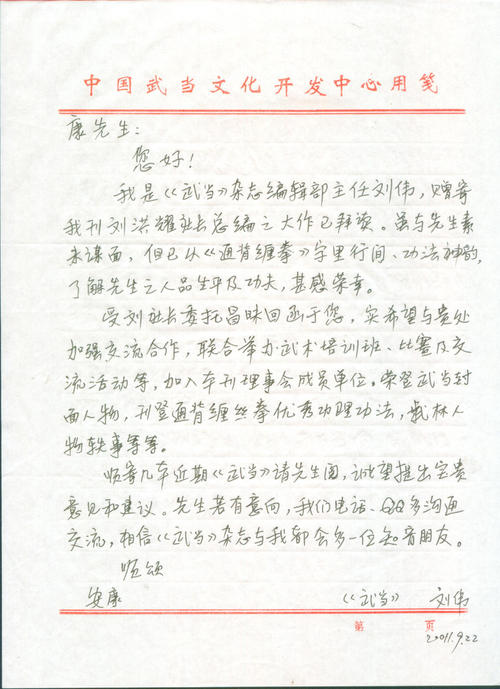 中国武当文化开发中心用笺
康先生：
您好！
我是《武当》杂志编辑部主任刘伟，赠寄
我刊刘洪耀社长总编之大作已拜读。虽与先生素
未谋面，但已从《通背缠拳》字里行间、功法神韵，
了解先生之人品生平及功夫，甚感荣幸。
受刘社长委托冒昧回函于您，实希望与贵处
加强交流合作，联合举办武术培训班、比赛及交
流活动等，加入本刊理事会成员单位。荣登武当封
面人物，刊登通背缠丝拳优秀功理功法，武林人
物轶事等等。
顺寄几本近期《武当》请先生阅，诚望提出宝贵
意见和建议。先生若有意向，我们电话、QQ多沟通
交流，相信《武当》杂志与我都会多一位知音朋友。
顺颂
安康
《武当》 刘伟
第 页
2011.9.22